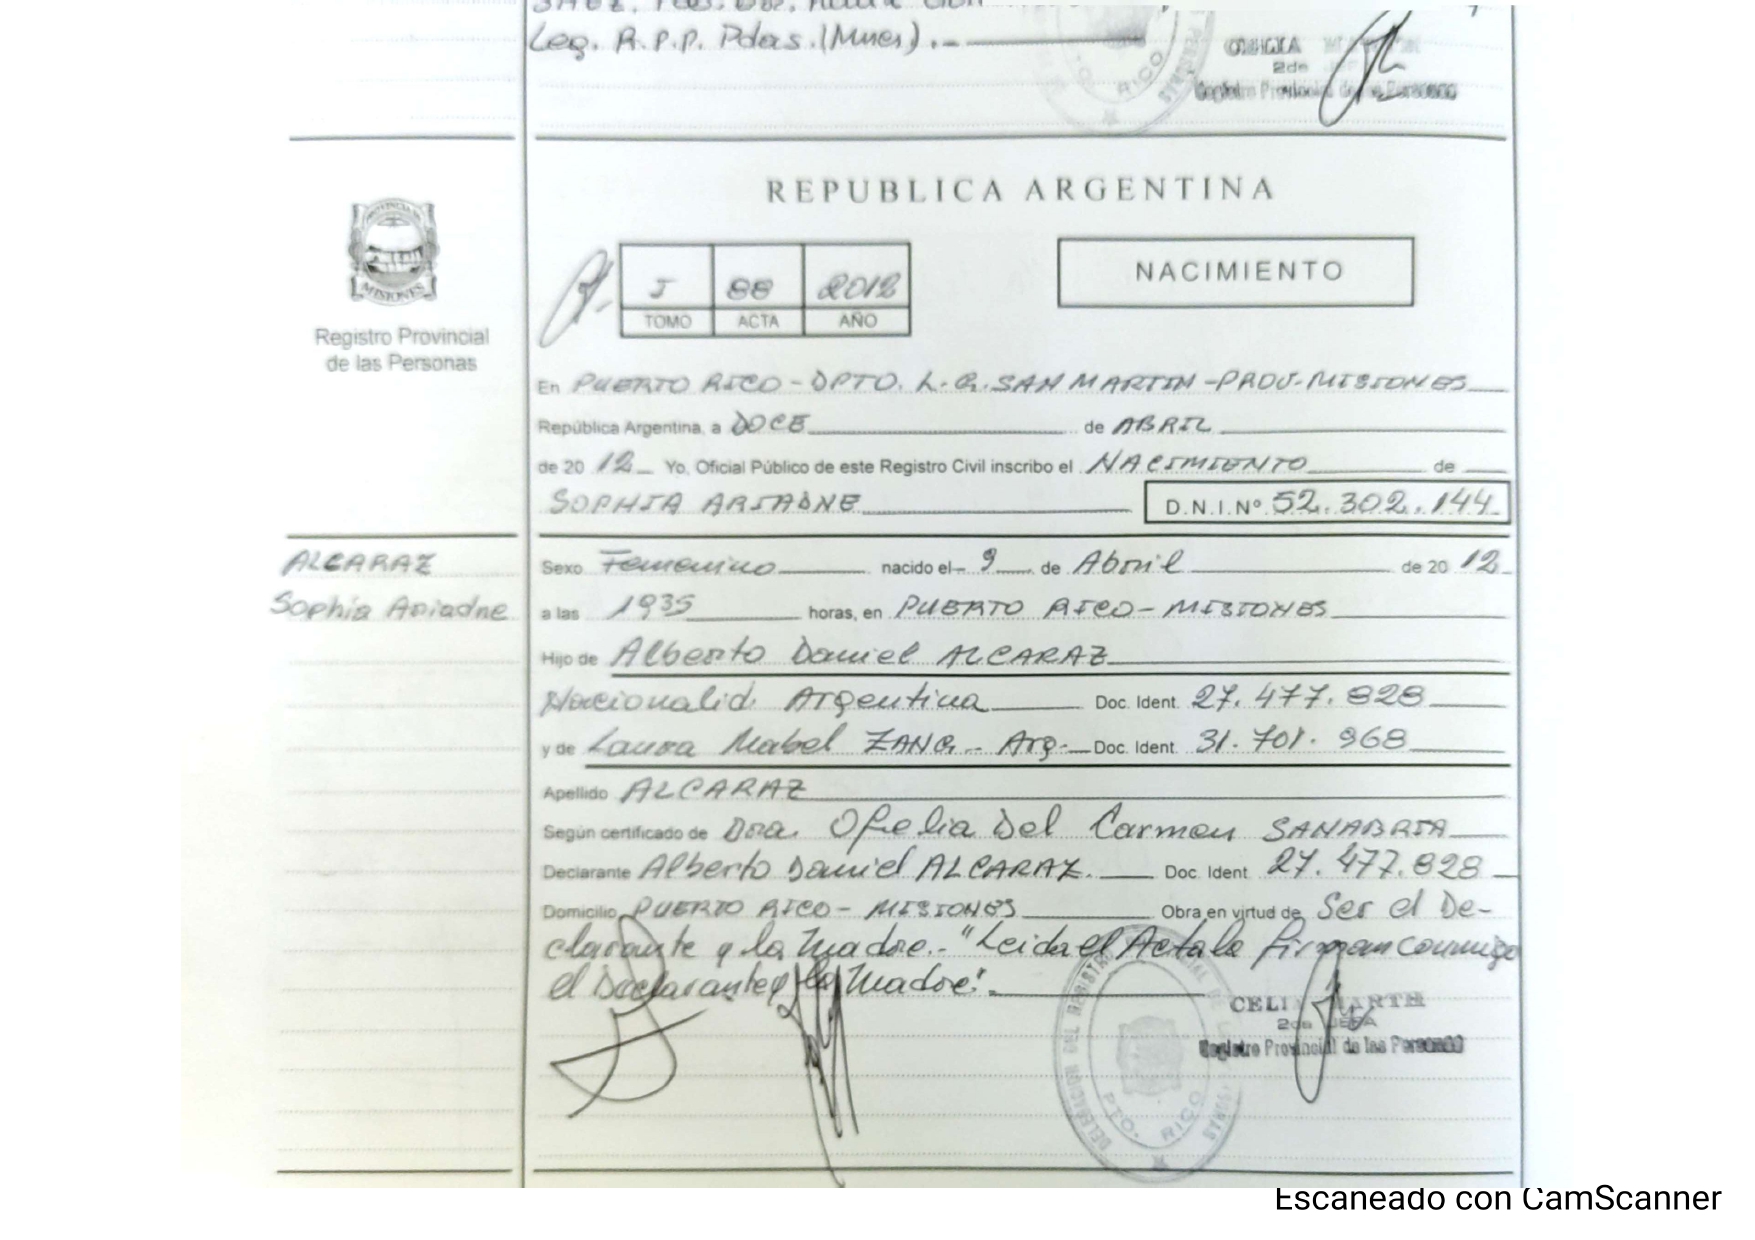 Leg. R.P.P. Pdas. (Mnes).-
2da
REPUBLICA ARGENTINA
PROVINCIA DE
MISIONES
Registro Provincial
de las Personas
I 88 2012
TOMO ACTA AÑO
NACIMIENTO
En PUERTO RICO - DPTO. L. G. SAN MARTIN - PROV. MISIONES
República Argentina, a DOCE de ABRIL
de 20 12 Yo, Oficial Público de este Registro Civil inscribo el NACIMIENTO de
SOPHIA ARIADNE D.N.I.Nº 52.302.144
ALCARAZ
Sophia Ariadne
Sexo Femenino nacido el 9 de Abril de 20 12
a las 1935 horas, en PUERTO RICO - MISIONES
Hijo de Alberto Daniel ALCARAZ
Nacionalid. Argentina Doc. Ident. 27.477.828
y de Laura Mabel ZANG - Arg. Doc. Ident. 31.701.968
Apellido ALCARAZ
Según certificado de Dra. Ofelia Del Carmen SANABRIA
Declarante Alberto Daniel ALCARAZ. Doc. Ident. 27.477.828
Domicilio PUERTO RICO - MISIONES Obra en virtud de Ser el De-
clarante y la Madre.- "Leida el Acta la firman conmigo
el Declarante y la Madre".
2da JEFA
Registro Provincial de las Personas
PTO. RICO
Escaneado con CamScanner